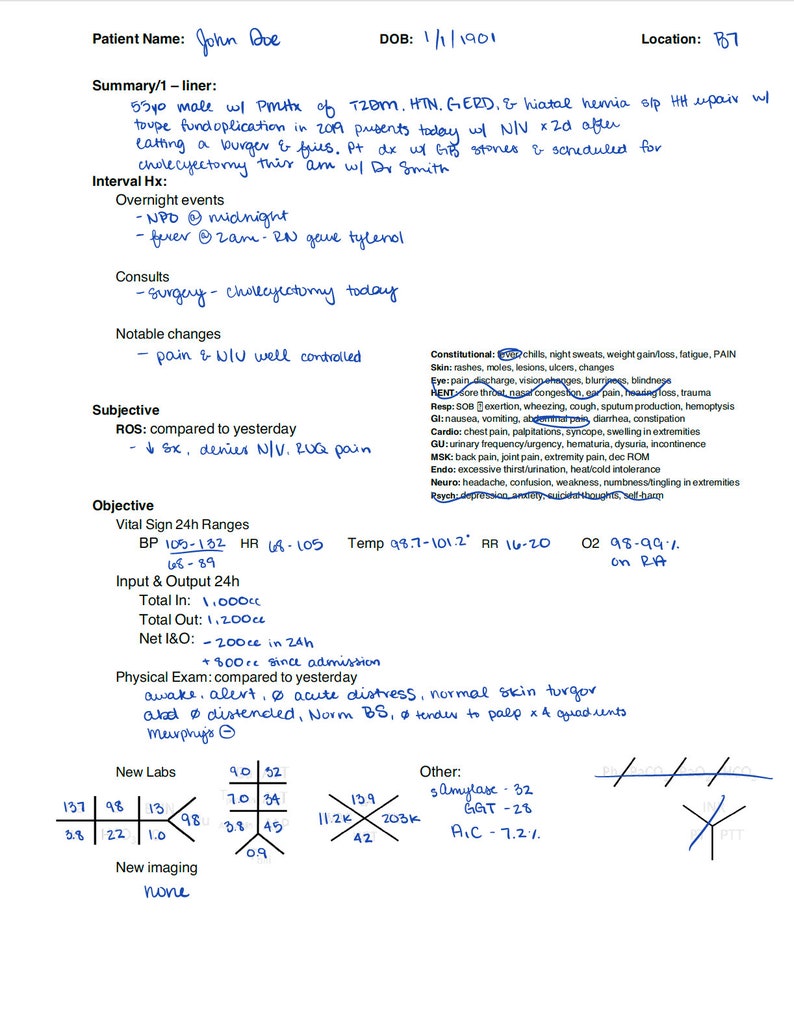 Patient Name: John Doe DOB: 1/1/1901 Location: B7
Summary/1 – liner:
55yo male w/ PMHx of T2DM, HTN, GERD, & hiatal hernia s/p HH repair w/
toupe fundoplication in 2019 presents today w/ N/V x 2d after
eatting a burger & fries. Pt dx w/ GB stones & scheduled for
cholecyectomy this am w/ Dr Smith
Interval Hx:
Overnight events
- NPO @ midnight
- fever @ 2am - RN gave tylenol
Consults
- surgery - cholecyectomy today
Notable changes
- pain & N/V well controlled
Constitutional: fever, chills, night sweats, weight gain/loss, fatigue, PAIN
Skin: rashes, moles, lesions, ulcers, changes
Eye: pain, discharge, vision changes, blurriness, blindness
HENT: sore throat, nasal congestion, ear pain, hearing loss, trauma
Resp: SOB exertion, wheezing, cough, sputum production, hemoptysis
GI: nausea, vomiting, abdominal pain, diarrhea, constipation
Cardio: chest pain, palpitations, syncope, swelling in extremities
GU: urinary frequency/urgency, hematuria, dysuria, incontinence
MSK: back pain, joint pain, extremity pain, dec ROM
Endo: excessive thirst/urination, heat/cold intolerance
Neuro: headache, confusion, weakness, numbness/tingling in extremities
Psych: depression, anxiety, suicidal thoughts, self-harm
Subjective
ROS: compared to yesterday
- ↓ sx, denies N/V, RUQ pain
Objective
Vital Sign 24h Ranges
BP 105-132 HR 68-105 Temp 98.7-101.2° RR 16-20 O2 98-99%
68-89 on RA
Input & Output 24h
Total In: 1,000cc
Total Out: 1,200cc
Net I&O: -200cc in 24h
+800cc since admission
Physical Exam: compared to yesterday
awake, alert, ∅ acute distress, normal skin turgor
abd ∅ distended, Norm BS, ∅ tender to palp x 4 quadrents
Murphy's ⊖
New Labs
137 98 13
3.8 22 1.0
98
9.0 32
7.0 34
3.8 45
0.9
13.9
11.2K 203K
42
Other:
sAmylase - 32
GGT - 28
A1C - 7.2%
PTT
New imaging
none